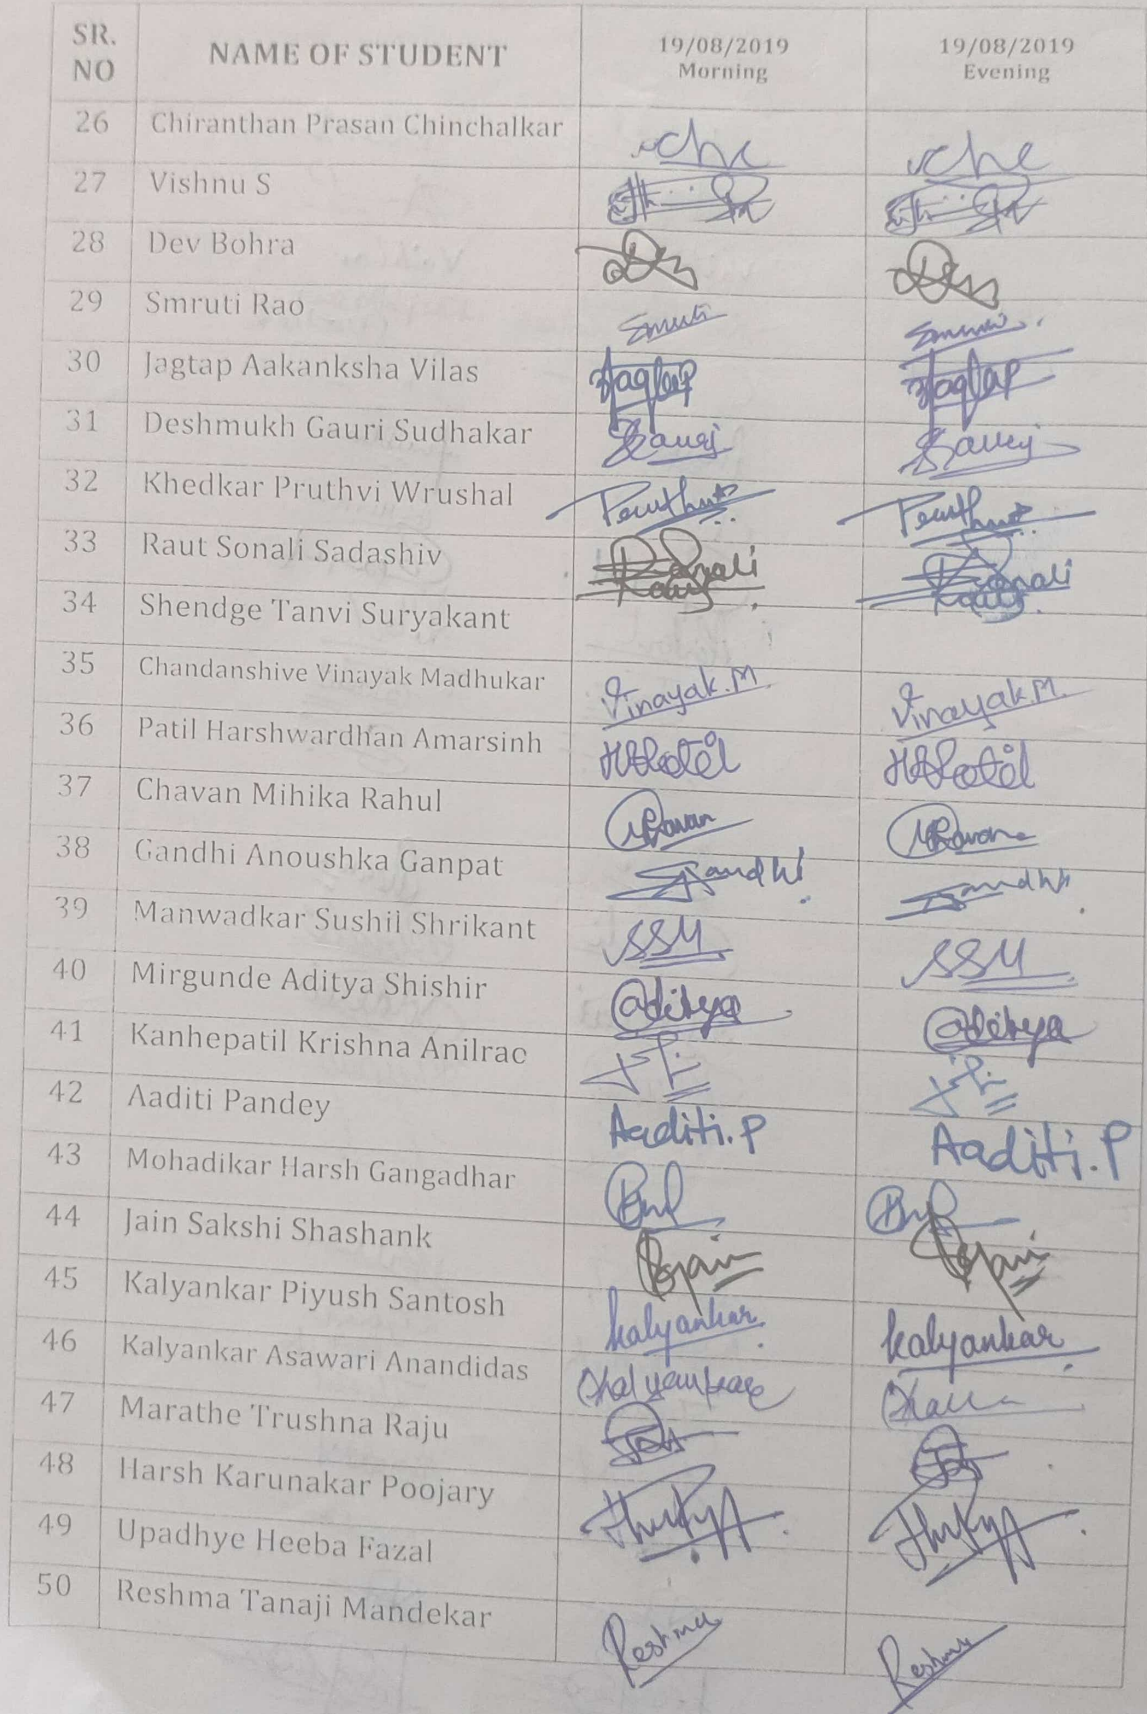 SR. NO NAME OF STUDENT 19/08/2019 Morning 19/08/2019 Evening
26 Chiranthan Prasan Chinchalkar
27 Vishnu S
28 Dev Bohra
29 Smruti Rao Smruti
30 Jagtap Aakanksha Vilas Jagtap Jagtap
31 Deshmukh Gauri Sudhakar
32 Khedkar Pruthvi Wrushal
33 Raut Sonali Sadashiv
34 Shendge Tanvi Suryakant
35 Chandanshive Vinayak Madhukar Vinayak.M. Vinayak.M.
36 Patil Harshwardhan Amarsinh
37 Chavan Mihika Rahul
38 Gandhi Anoushka Ganpat Gandhi Gandhi
39 Manwadkar Sushil Shrikant SSM SSM
40 Mirgunde Aditya Shishir Aditya Aditya
41 Kanhepatil Krishna Anilrao
42 Aaditi Pandey Aaditi.P Aaditi.P
43 Mohadikar Harsh Gangadhar
44 Jain Sakshi Shashank
45 Kalyankar Piyush Santosh kalyankar kalyankar
46 Kalyankar Asawari Anandidas
47 Marathe Trushna Raju
48 Harsh Karunakar Poojary
49 Upadhye Heeba Fazal
50 Reshma Tanaji Mandekar Reshma Reshma